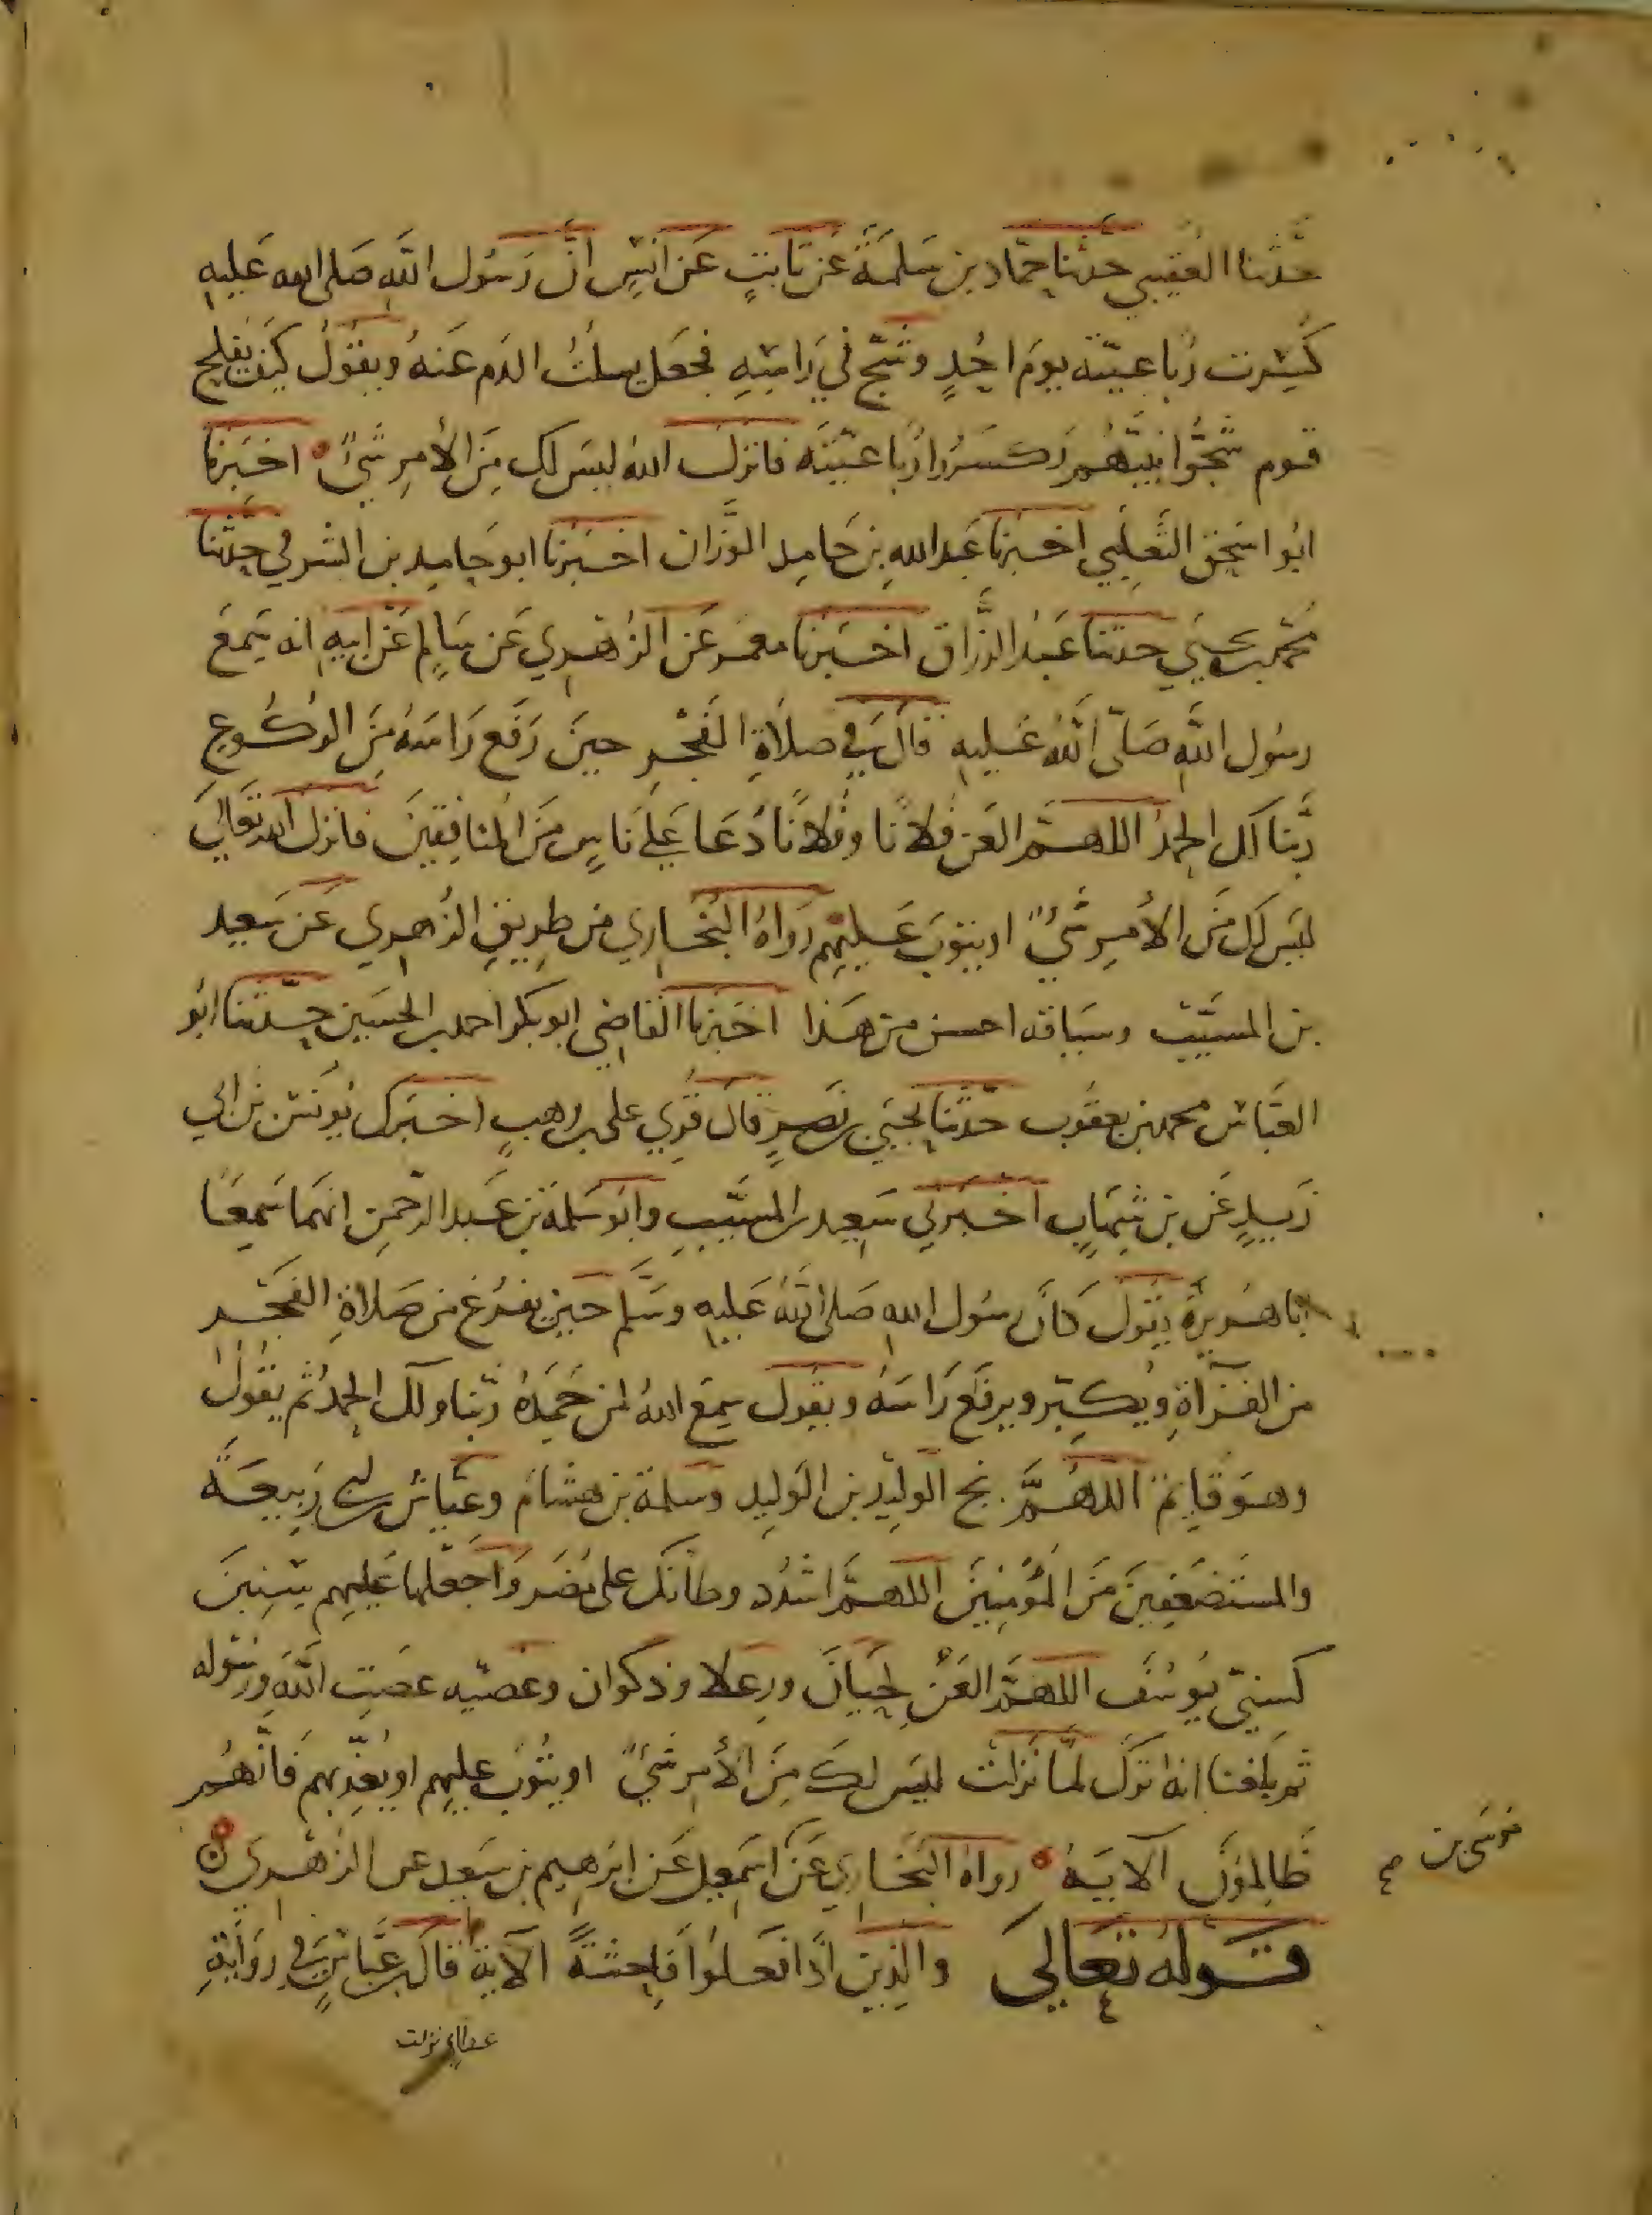 حدثنا القعنبي حدثنا حماد بن سلمة عن ثابت عن انس ان رسول الله صلى الله عليه
كسرت رباعيته يوم احد وشج في راسه فجعل يسلت الدم عنه ويقول كيف يفلح
قوم شجوا نبيهم وكسروا رباعيته فانزل الله ليس لك من الأمر شئ اخبرنا
ابو اسحق الثعلبي اخبرنا عبدالله بن حامد الوزان اخبرنا ابو حامد بن الشرقي حدثنا
محمد بن يحيى حدثنا عبد الرزاق اخبرنا معمر عن الزهري عن سالم عن ابيه انه سمع
رسول الله صلى الله عليه قال في صلاة الفجر حين رفع راسه من الركوع
ربنا لك الحمد اللهم العن فلانا وفلانا دعا على ناس من المنافقين فانزل الله تعالى
ليس لك من الأمر شئ او يتوب عليهم رواه البخاري من طريق الزهري عن سعيد
بن المسيب وسياقه احسن من هذا اخبرنا القاضي ابو بكر احمد بن الحسين حدثنا ابو
العباس محمد بن يعقوب حدثنا يحيى بن نصر قال قري على بن وهب اخبرك يونس بن
زيد عن بن شهاب اخبرني سعيد بن المسيب وابو سلمة بن عبد الرحمن انهما سمعا
ابا هريرة يقول كان رسول الله صلى الله عليه وسلم حين يفرغ من صلاة الفجر
من القراة ويكبر ويرفع راسه ويقول سمع الله لمن حمده ربنا ولك الحمد ثم يقول
وهو قايم اللهم نج الوليد بن الوليد وسلمة بن هشام وعياش بن ابي ربيعة
والمستضعفين من المؤمنين اللهم اشدد وطاتك على مضر واجعلها عليهم سنين
كسني يوسف اللهم العن لحيان ورعلا وذكوان وعصيه عصت الله ورسوله
ثم بلغنا انه ترك لما نزلت ليس لك من الأمر شئ او يتوب عليهم او يعذبهم فانهم
ظالمون الآية رواه البخاري عن موسى بن اسمعيل عن ابرهيم بن سعيد عن الزهري
قوله تعالى والذين اذا فعلوا فاحشة الآية قال بن عباس في رواية
عطا نزلت